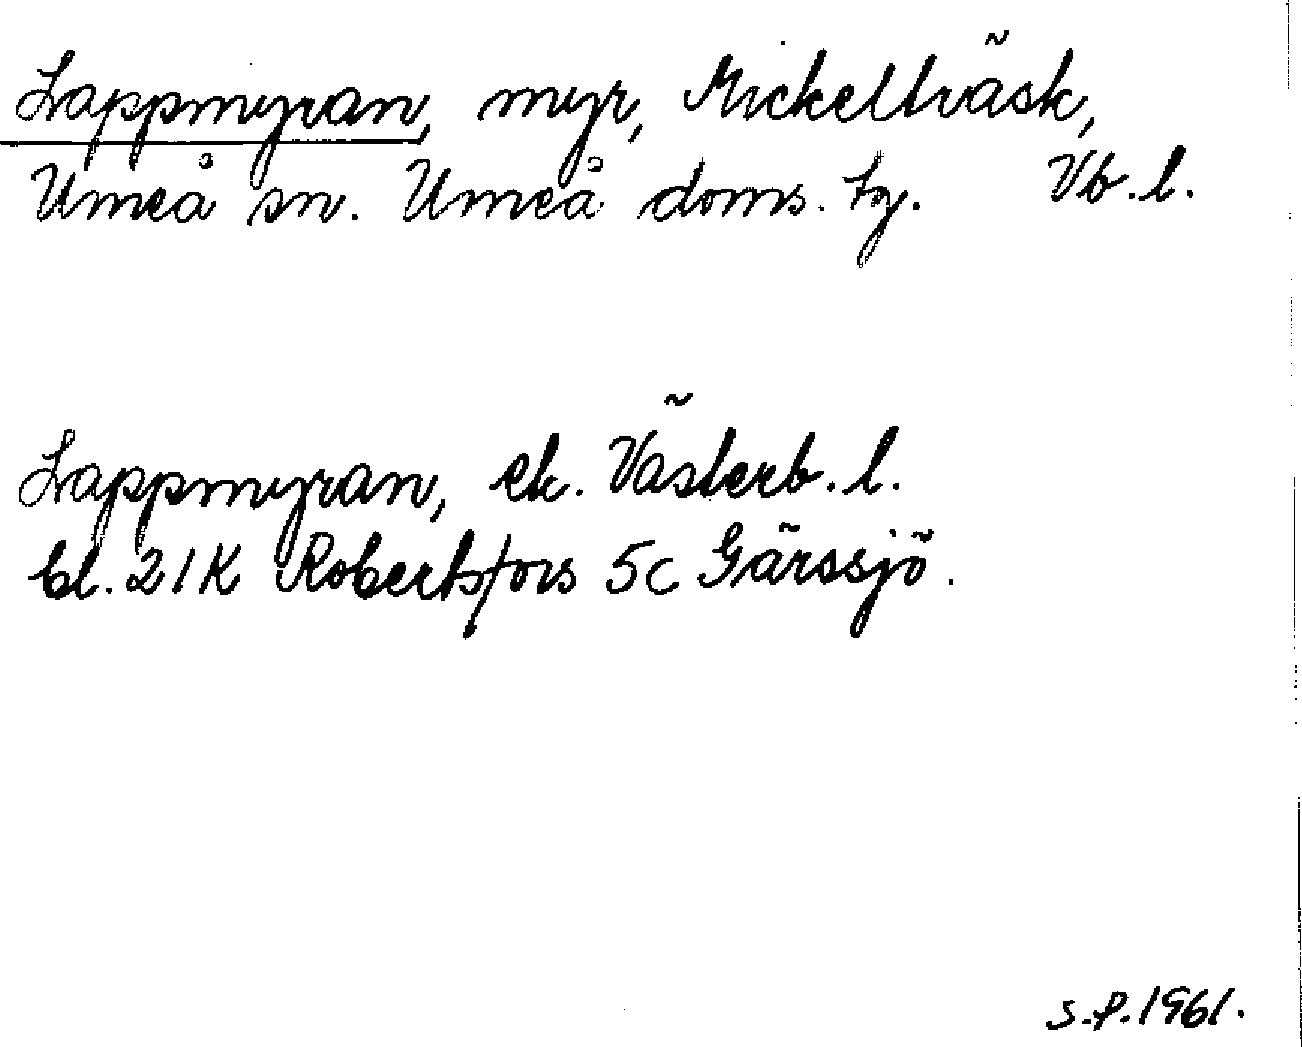 Lappmyran, myr, Mickelträsk,
Umeå sn. Umeå doms. tg. Vb. l.
Lappmyran, ek. Västerb. l.
bl. 21K Robertsfors 5c Gärssjö.
S.P. 1961.